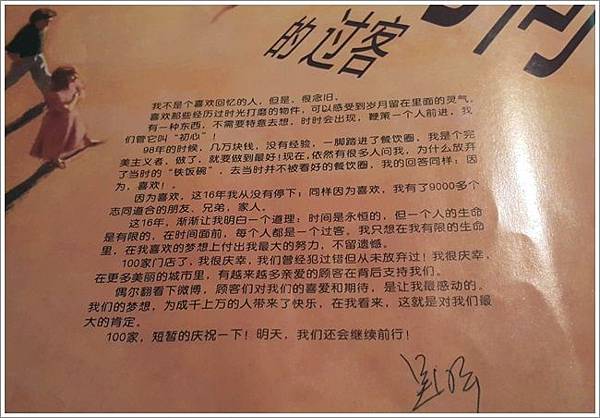 的过客
我不是个喜欢回忆的人，但是，很念旧。
喜欢那些经历过时光打磨的物件，可以感受到岁月留在里面的灵气。
有一种东西，不需要特意去想，时时会出现，鞭策一个人前进，我
们管它叫“初心”！
98年的时候，几万块钱，没有经验，一脚踏进了餐饮圈，我是个完
美主义者，做了，就要做到最好！现在，依然有很多人问我，为什么放弃
了当时的“铁饭碗”，去当时并不被看好的餐饮圈，我的回答同样：因
为，喜欢！。
因为喜欢，这16年我从没有停下；同样因为喜欢，我有了9000多个
志同道合的朋友、兄弟，家人。
这16年，渐渐让我明白一个道理：时间是永恒的，但一个人的生命
是有限的，在时间面前，每个人都是一个过客。我只想在我有限的生命
里，在我喜欢的梦想上付出我最大的努力，不留遗憾。
100家门店了，我很庆幸，我们曾经犯过错但从未放弃过！我很庆幸，
在更多美丽的城市里，有越来越多亲爱的顾客在背后支持我们。
偶尔翻看下微博，顾客们对我们的喜爱和期待，是让我最感动的。
我们的梦想，为成千上万的人带来了快乐，在我看来，这就是对我们最
大的肯定。
100家，短暂的庆祝一下！明天，我们还会继续前行！